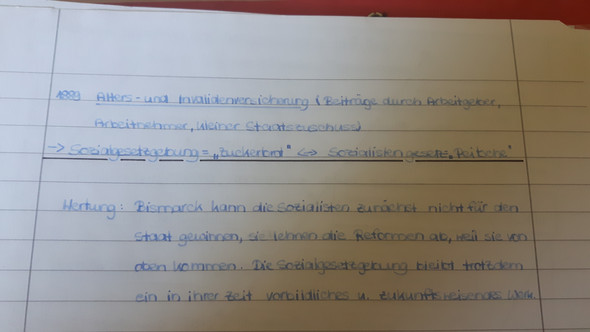 1889 Alters- und Invalidenversicherung (Beiträge durch Arbeitgeber,
Arbeitnehmer, kleiner Staatszuschuss)
→ Sozialgesetzgebung = „Zuckerbrot" <-> Sozialistengesetz „Peitsche"
Wertung: Bismarck kann die Sozialisten zunächst nicht für den
Staat gewinnen, sie lehnen die Reformen ab, weil sie von
oben kommen. Die Sozialgesetzgebung bleibt trotzdem
ein in ihrer Zeit vorbildliches u. zukunftsweisendes Werk.